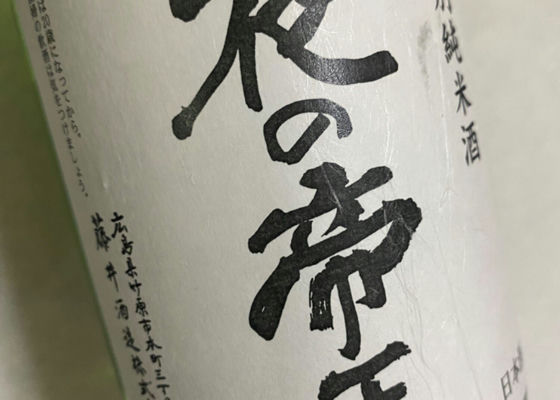 純米酒
夜の帝王
は20歳になってから。
の飲酒は気をつけましょう。
広島県竹原市本町三丁
藤井酒造株式
日本